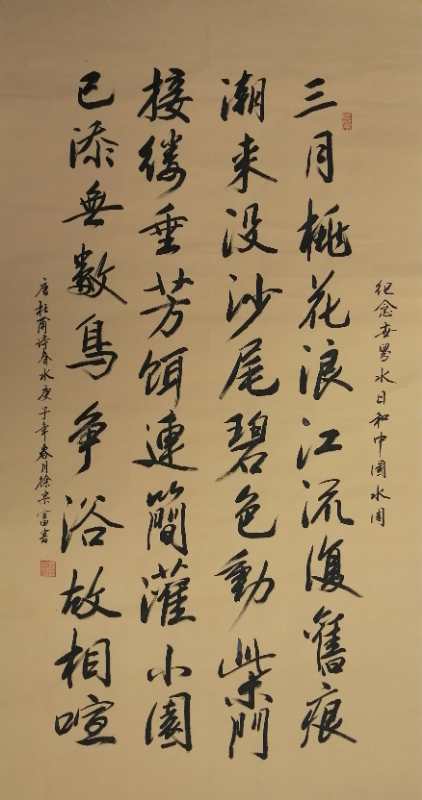 纪念世界水日和中國水周
三月桃花浪江流復舊痕
潮来没沙尾碧色動柴門
接缕垂芳饵連簡灌小園
已添無數鳥争浴故相喧
唐杜甫诗春水庚子年春月徐富書